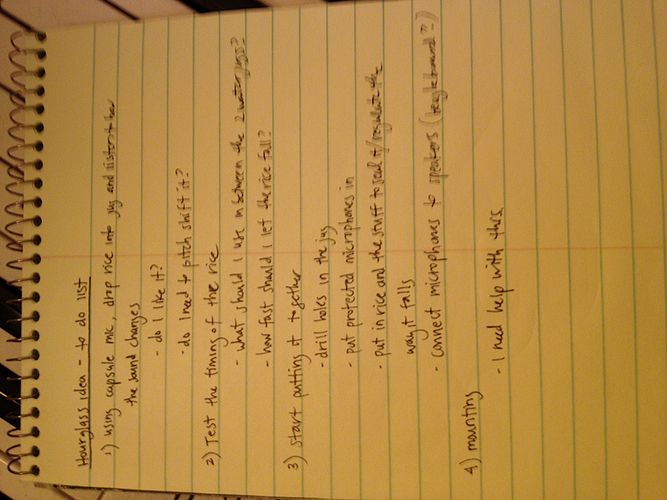 Hourglass idea - to do list
1) using capsule mic, drop rice into jug and listen to how
the sound changes
- do I like it?
- do I need to pitch shift it?
2) Test the timing of the rice
- what should I use in between the 2 water jugs?
- how fast should I let the rice fall?
3) start putting it together
- drill holes in the jug
- put protected microphones in
- put in rice and the stuff to seal it/regulate the
way it falls
- connect microphones to speakers (
4) mounting
- I need help with this.